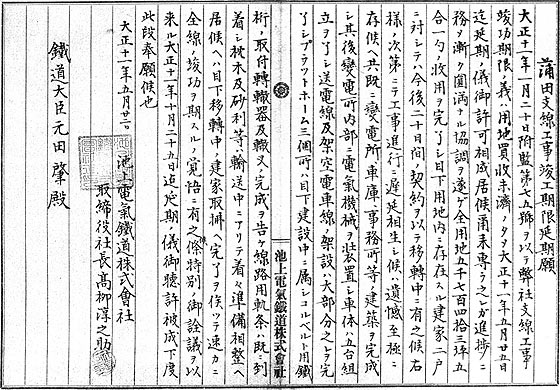 蒲田支線工事竣工期限延期願
大正十一年一月二十日附監第七五號ヲ以テ弊社支線工事
竣功期限ノ義ハ用地買收未濟ノタメ大正十一年五月廿五日
迄延期ノ儀御許可相成居候爾来專ラ之レガ進捗ニ
務メ漸ク圓満ナル協調ヲ遂ゲ全用地五千七百四拾三坪五
合一勺ハ收用ヲ完了シ目下用地内ニ存在スル建家二戸
ニ対シテハ今後二十日間ノ契約ヲ以テ移轉中ニ有之候右
様ノ次第ニテ工事進行ニ遅延相生シ候ハ遺憾至極ニ
存候ヘ共既ニ變電所車庫事務所等ノ建築ヲ完成
シ其後變電所内部ニ電氣機械ヲ装置シ車体ハ五台組
立ヲ了シ送電線及架空電車線ノ架設ハ大部分之レヲ完
了シプラットホーム三個所ハ目下建設中ニ属シコルベルト用鐵
池上電氣鐵道株式會社
桁ノ取付轉轍器及轍叉ノ完成ヲ告ケ線路用軌条ハ既ニ到
着シ枕木及砂利等ハ輸送中ニアリテ着々進備相整ヘ
居候ヘハ目下移轉中ノ建家取拂ヘ完了ヲ俟ツテ速カニ
全線ノ竣功ヲ期スル覚悟ニ有之候條特別ノ御詮議ヲ以
来ル大正十一年十月二十五日迄延期ノ儀御聴許被成下度
此段奉願候也
大正十一年五月廿二日
池上電氣鐵道株式會社
取締役社長高柳淳之助
鐵道大臣元田肇殿